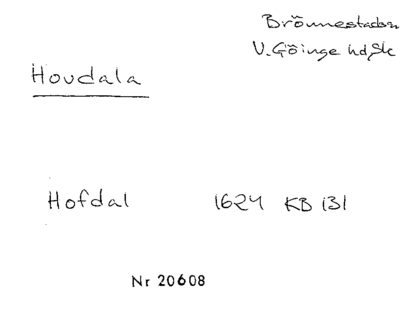 Brönnestads sn
V. Göinge hd, Sk
Hovdala
Hofdal 1624 KB 131
Nr 20608